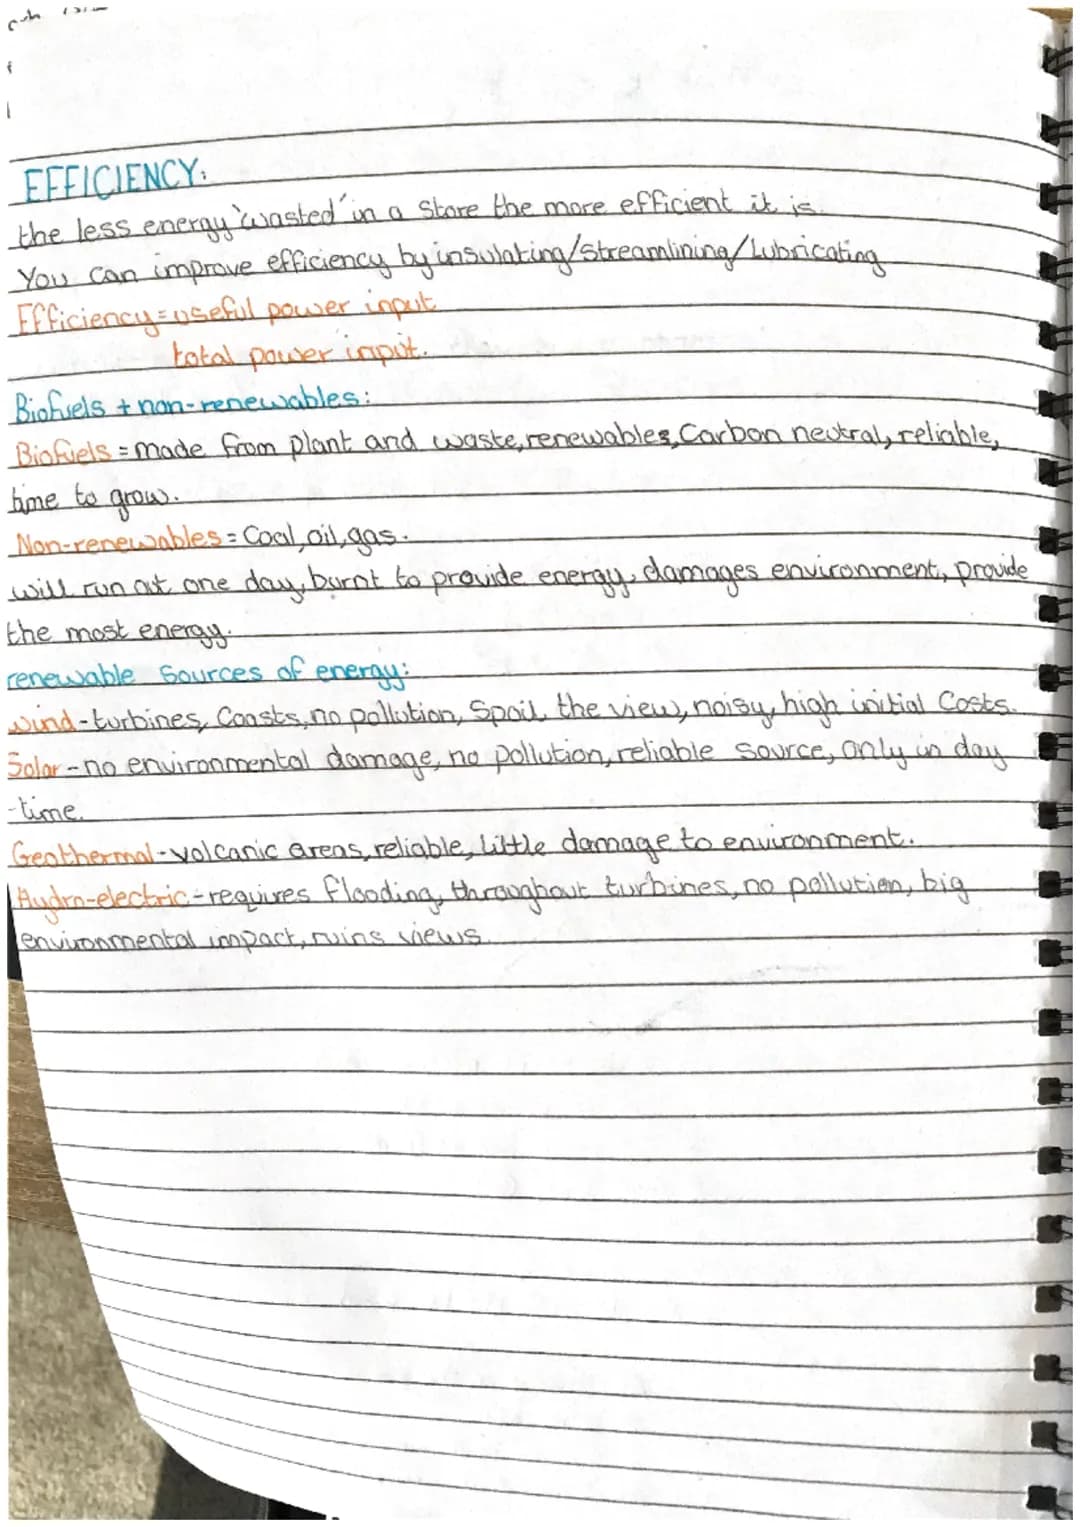 EFFICIENCY:
the less energy 'wasted' in a store the more efficient it is.
You can improve efficiency by insulating/streamlining/lubricating
Efficiency = useful power input
total power input.
Biofuels + non-renewables:
Biofuels = made from plant and waste, renewables, Carbon neutral, reliable,
time to grow.
Non-renewables = Coal, oil, gas.
will run out one day, burnt to provide energy, damages environment, provide
the most energy.
renewable sources of energy:
wind - turbines, Coasts, no pollution, Spoil the view, noisy, high initial Costs.
Solar - no environmental damage, no pollution, reliable source, only in day
-time.
Geothermal - volcanic areas, reliable, little damage to environment.
Hydro-electric - requires flooding, throughout turbines, no pollution, big
environmental impact, ruins views.